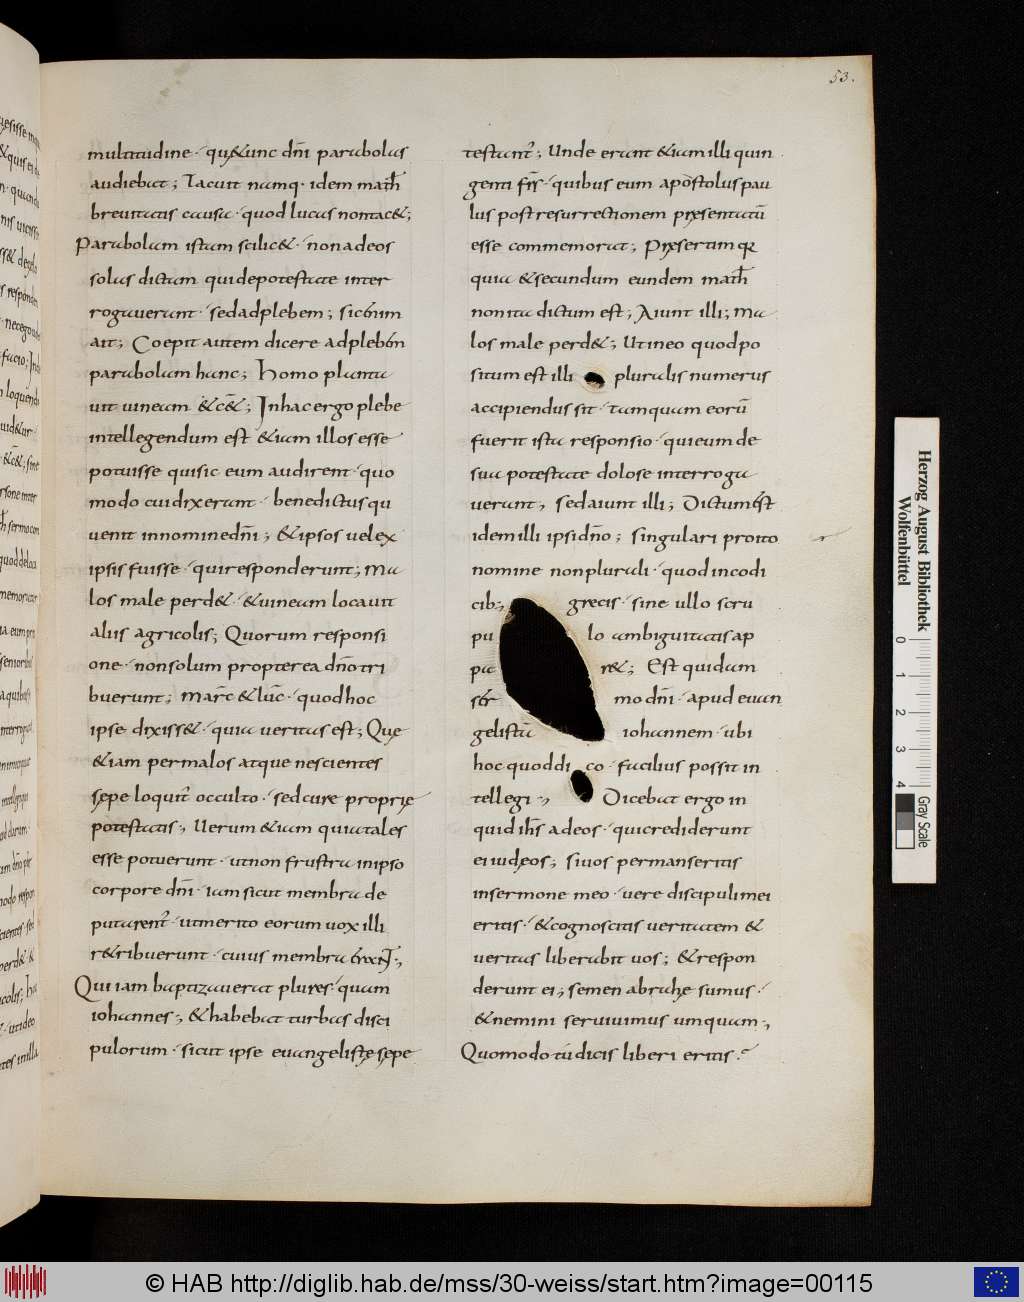 53.
multitudine · quę&unc dn̄i parabolas
audiebat; Tacuit namq· idem math̄
breuitatis causa · quod lucas nontac&;
Parabolam istam scilic& · nonadeos
solus dictam quidepotestate inter
rogauerunt · sedadplebem; sicēnim
ait; Coepit autem dicere adplebēm
parabolam hanc; Homo planta
uit uineam &c&; Inhac ergo plebe
intellegendum est &iam illos esse
potuisse quisic eum audirent · quo
modo cuidixerunt · benedictus qui
uenit innominedn̄i; &ipsos uel ex
ipsis fuisse · quiresponderunt; Ma
los male perd& · &uineam locauit
aliis agricolis; Quorum responsi
one · nonsolum propterea dn̄o tri
buerunt; marc̄ & luc̄ · quodhoc
ipse dixiss& · quia ueritas est; Quę
&iam permalos atque nescientes
sępe loquit̄ occulto · sedcure proprię
potestatis; Uerum &iam quiatales
esse potuerunt · utnon frustra inipso
corpore dn̄i · iam sicut membra de
putarent̄ · utmerito eorum uox illi
r&ribuerunt · cuius membra
Qui iam baptizauerat plures · quam
iohannes; &habebat turbas disci
pulorum · sicut ipse euangelistę sępe
testant̄; Unde erant &iam illi quin
genti fr̄s · quibus eum apostolus pau
lus post resurrectionem pręsentatū
esse commemorat; Pręsertim q
quia &secundum eundem math̄
nonita dictum est; Aiunt illi; ma
los male perd&; Utineo quodpo
situm est illi pluralis numerus
accipiendus sit · tamquam eorū
fuerit ista responsio · quieum de
sua potestate dolose interroga
uerunt, sedaiunt illi; Dictum ēst
idem illi ipsi dn̄o; singulari proito
nomine nonplurali · quod incodi
cib; grecis · sine ullo scru
pu lo ambiguitatis ap
pa r&; Est quidam
ser mo dn̄i · apud euan
gelistā iohannem · ubi
hoc quoddi co · facilius possit in
tellegi; Dicebat ergo in
quid ih̄s adeos · quicrediderunt
ei iudeos; siuos permanseritis
insermone meo · uere discipuli mei
eritis · &cognoscitis ueritatem &
ueritas liberabit uos; &respon
derunt ei; semen abrahę sumus ·
&nemini seruiuimus umquam;
Quomodo tu dicis liberi eritis?
Herzog August Bibliothek
Wolfenbüttel
0 1 2 3 4
Gray Scale
© HAB http://diglib.hab.de/mss/30-weiss/start.htm?image=00115